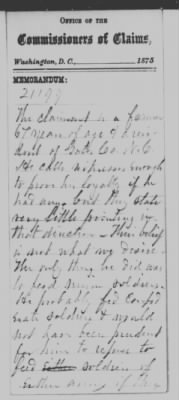 OFFICE OF THE
Commissioners of Claims,
Washington, D. C., 1875
MEMORANDUM:
21199
The claimant is a farmer
67 years of age & a resi-
dent of Co. N. C.
He calls witnesses enough
to prove his loyalty if he
had any but they state
very little pointing in
that direction – Their belief
is not what we desire –
The only thing he did was
to feed union soldiers
He probably fed confed
erate soldiers & would
not have been prudent
for him to refuse to
feed soldiers of
either army if they